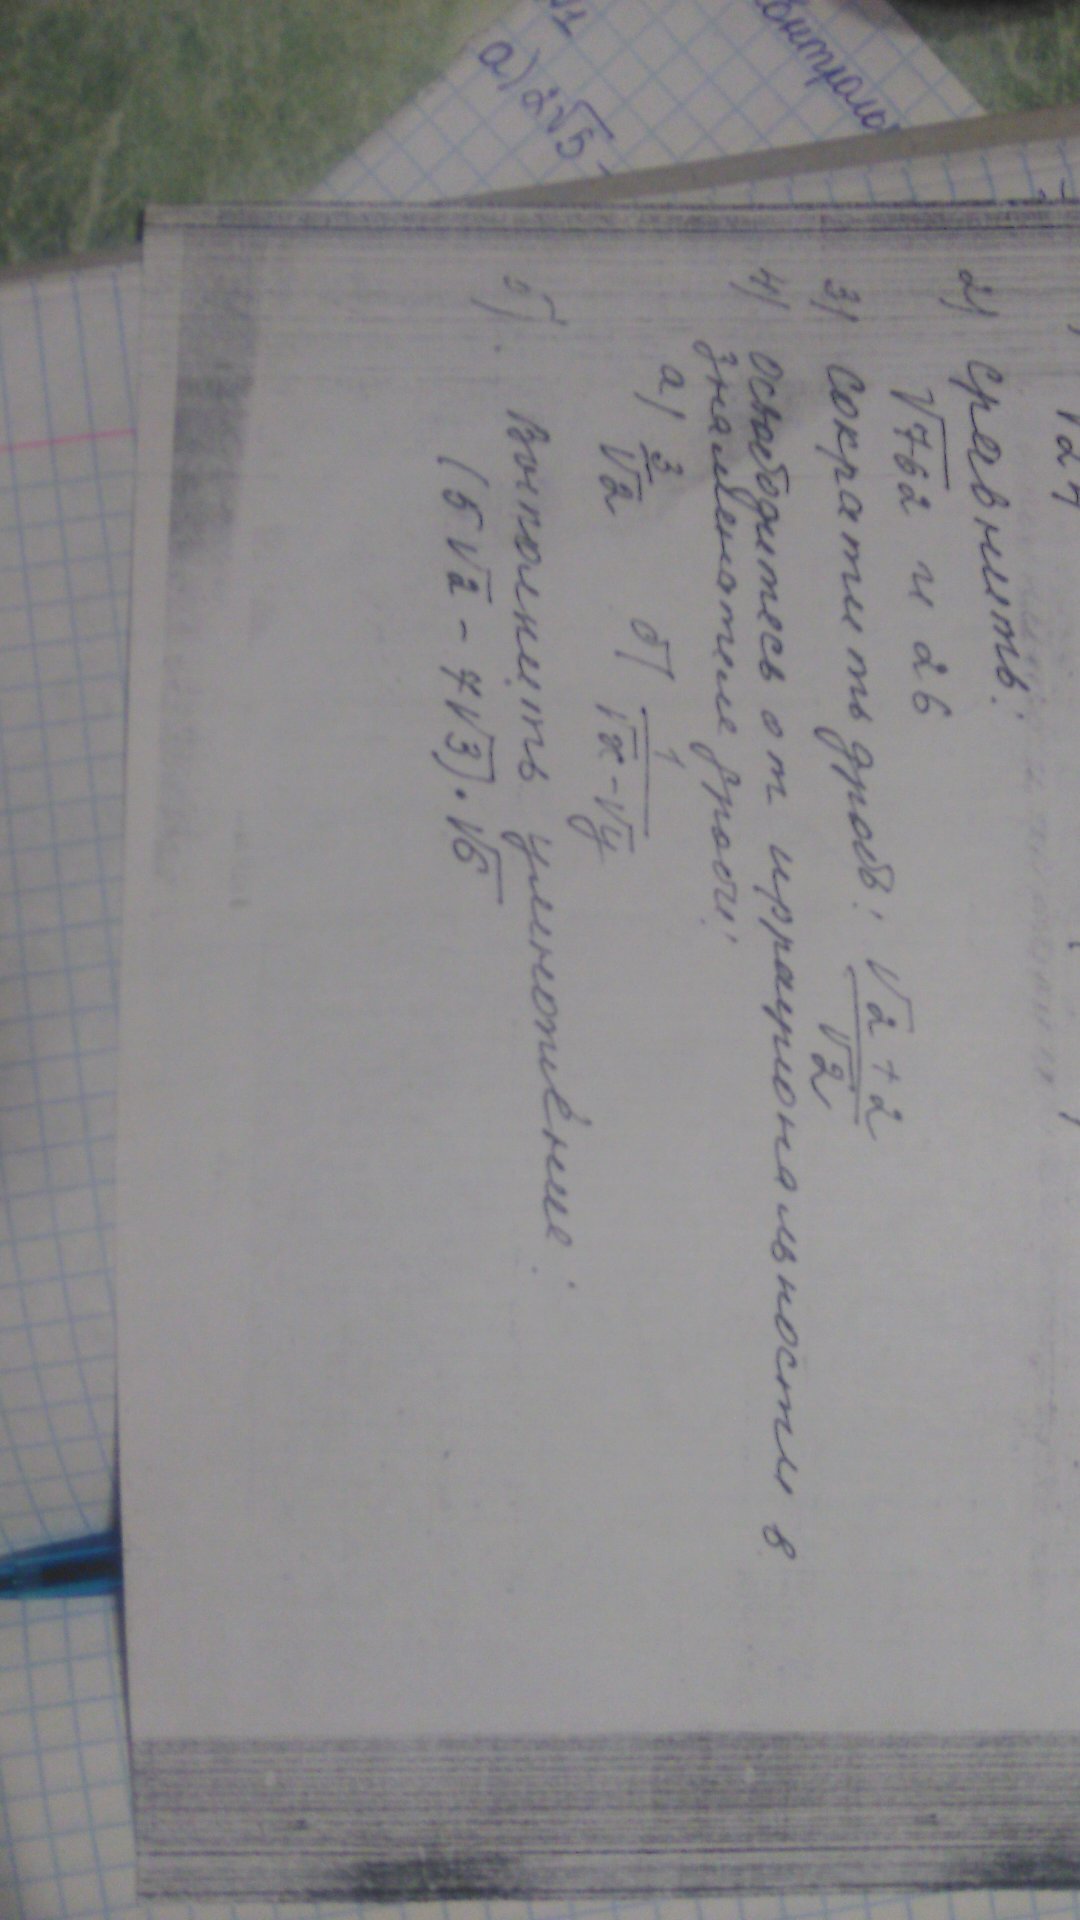 √24
2) Сравнить:
√762 и 26
3) Сократить дробь: (√2 + 2)/√2
4) освободитесь от иррациональности в
знаменателе дроби:
а) 3/√2 б) 1/(√x - √y)
5). Выполнить умножение:
(5√2 - 7√3) · √6
а) 2√5